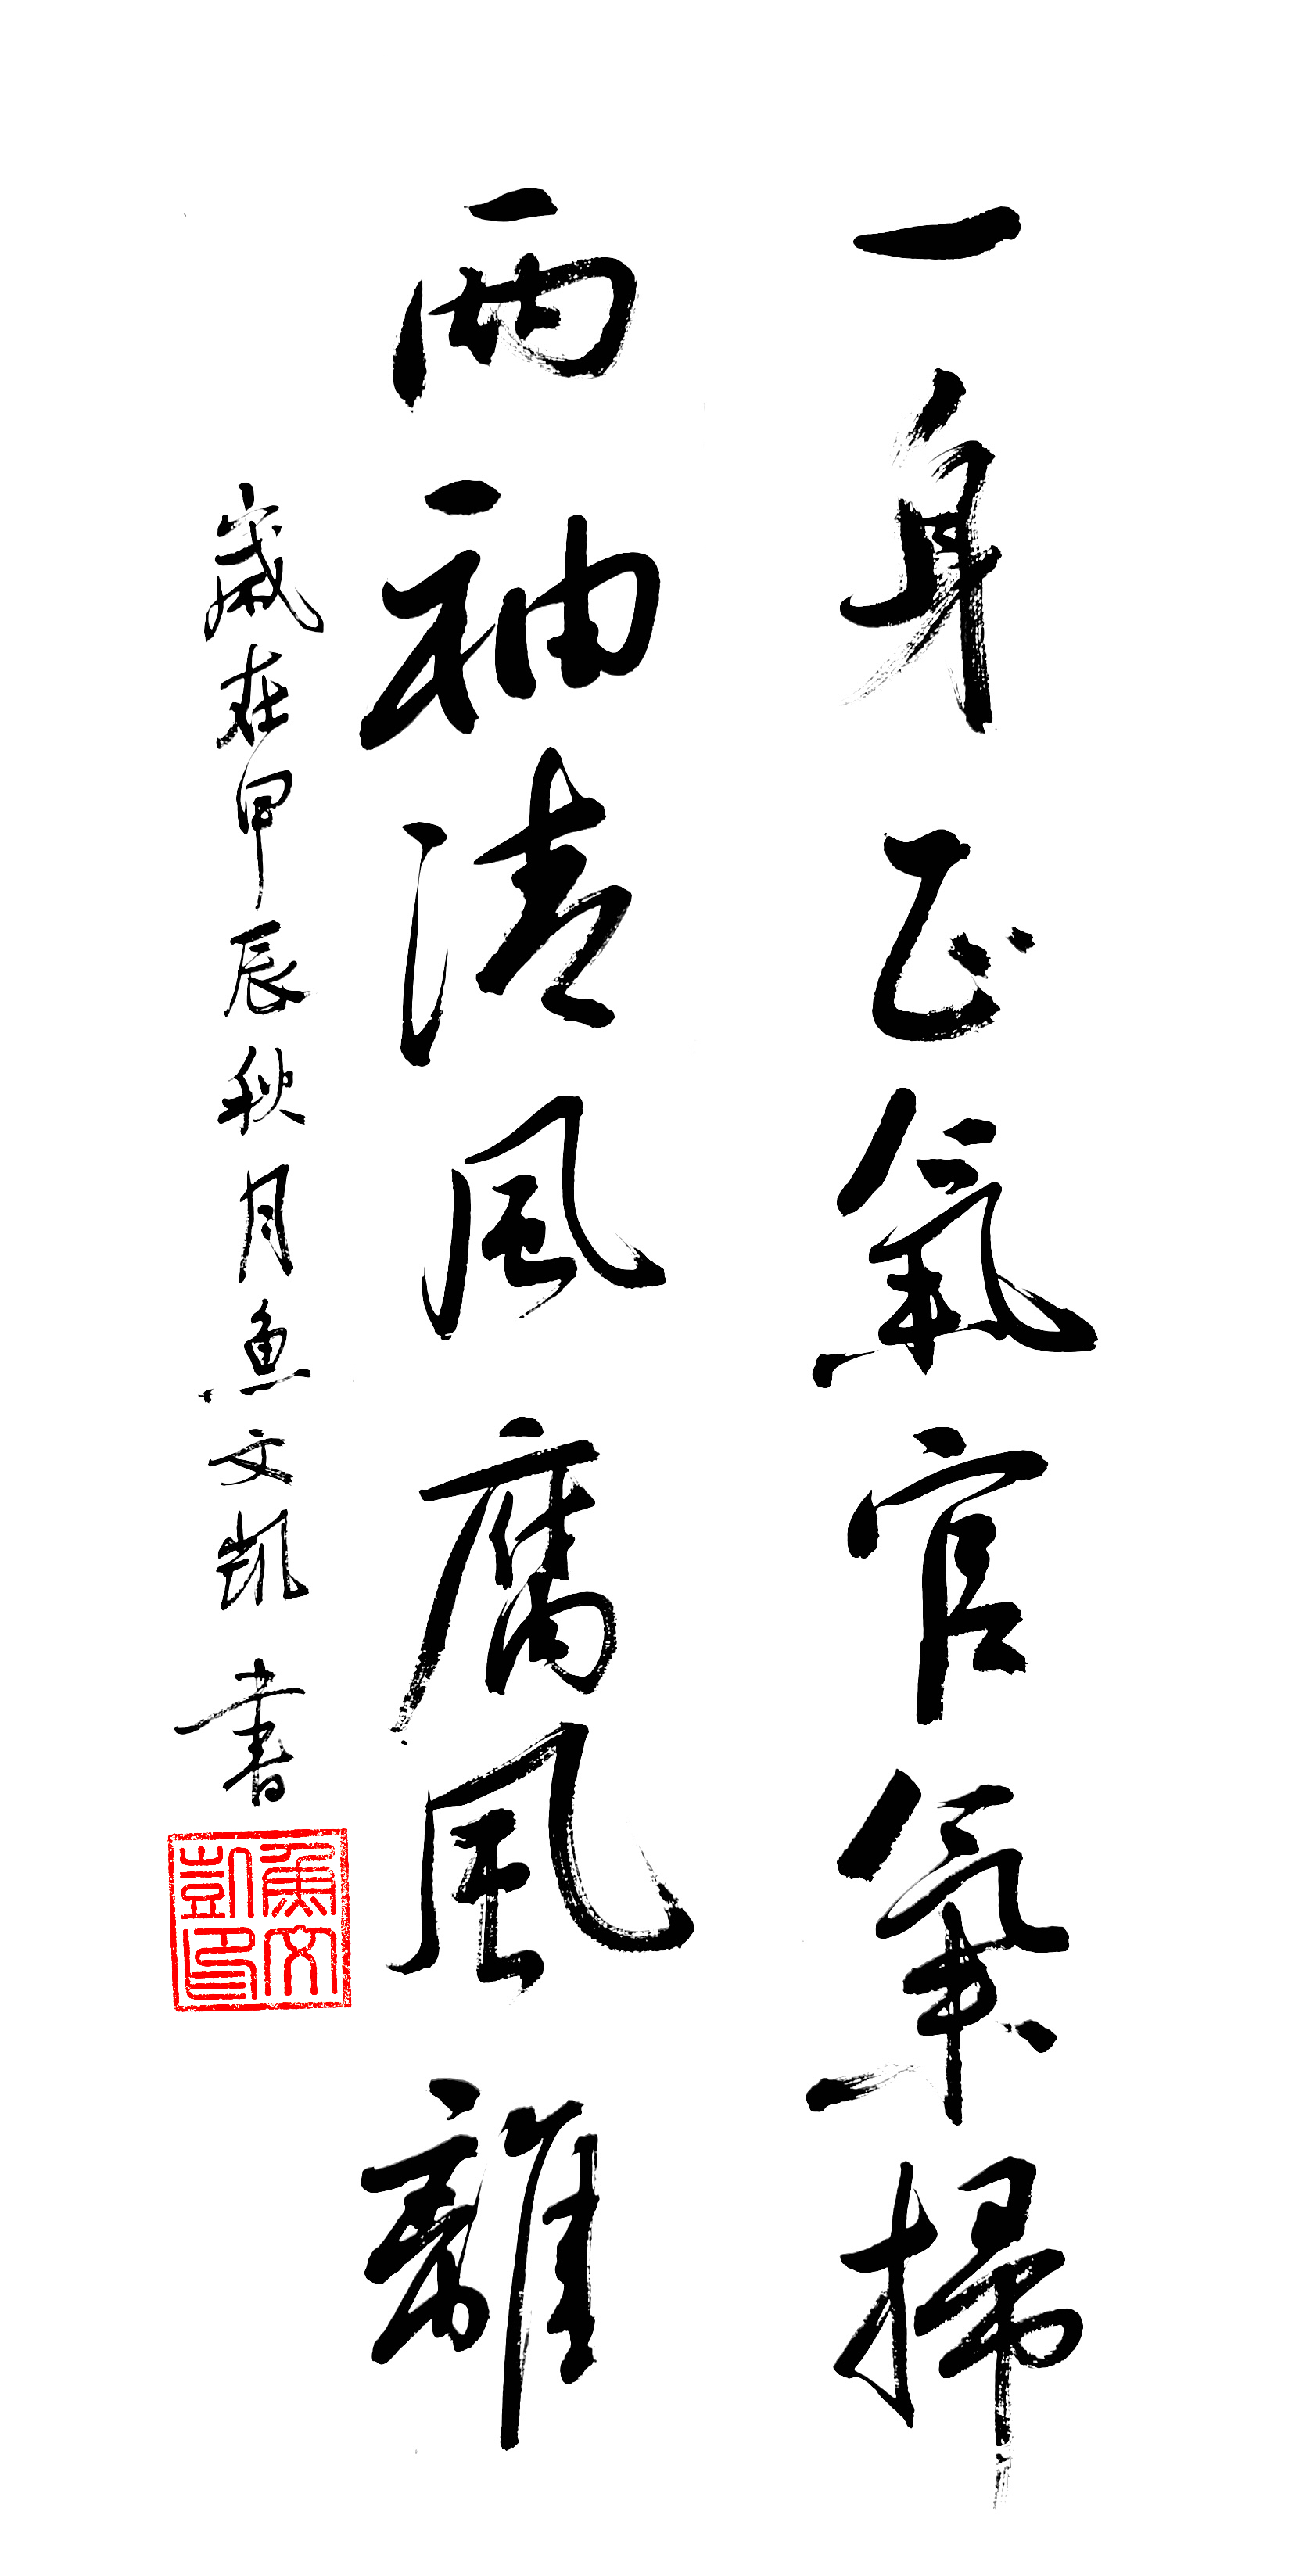 一身正氣官氣掃
兩袖清風腐風離
歲在甲辰秋月魚文凱書
魚文凱印